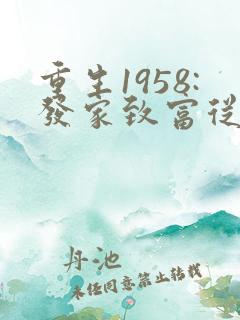 重生1958:
發家致富從
丹池
未任同意禁止转载